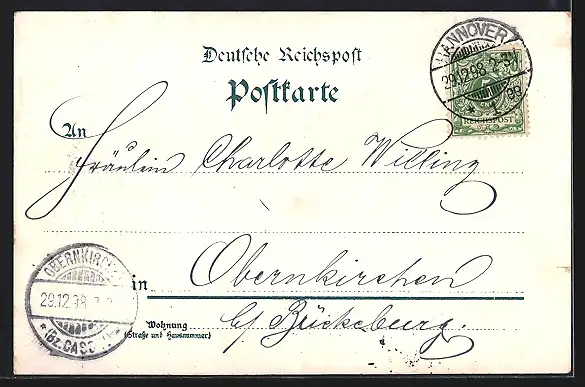 HANNOVER
29.12.98
Deutsche Reichspost
Postkarte
REICHSPOST
An
Fräulein Charlotte Willing
OBERNKIRCHEN
29.12.98
*(Bz. CASSEL)*
in Obernkirchen
Wohnung
(Straße und Hausnummer)
b/ Bückeburg.